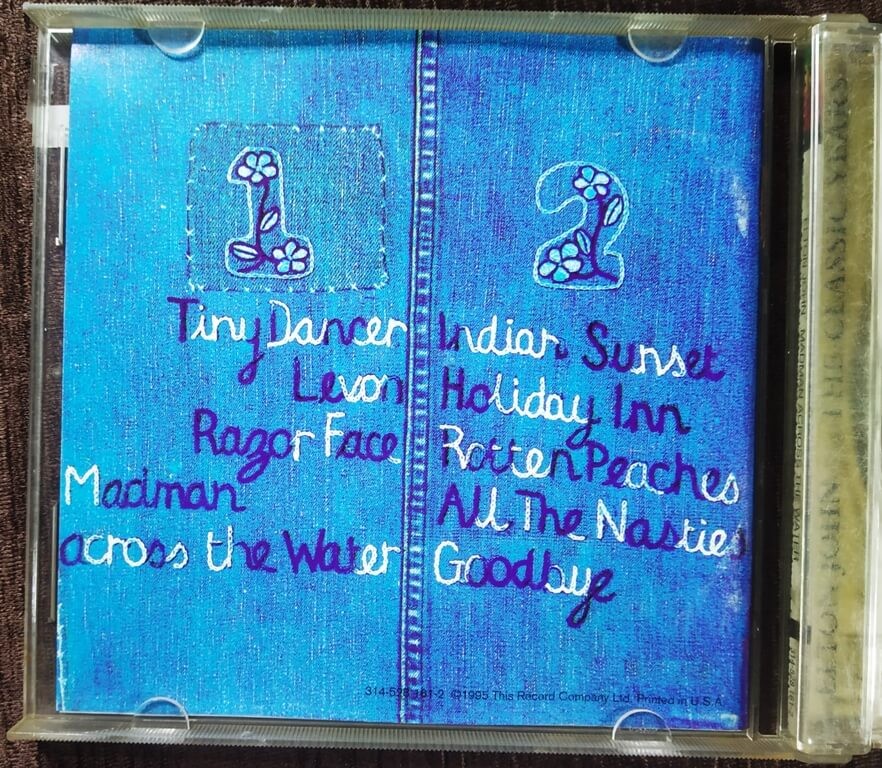 1
Tiny Dancer
Levon
Razor Face
Madman
across the Water
2
Indian Sunset
Holiday Inn
Rotten Peaches
All The Nasties
Goodbye
314-528 161-2 ©1995 This Record Company Ltd. Printed in U.S.A.
ELTON JOHN MADMAN ACROSS THE WATER
ELTON JOHN THE CLASSIC YEARS